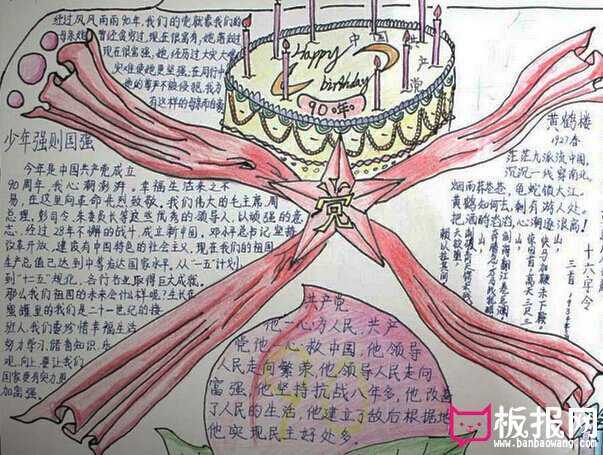 经过风风雨雨90年,我们的党就像我们的
母亲
现在很富强,她经历过大灾大难
有这样的母亲而
Happy
birthday
90年
中国共产党
党
少年强则国强
今年是中国共产党成立
90周年,我心潮澎湃。幸福生活来之不
易,在这里向革命先烈致敬。我们伟大的毛主席,周
总理,彭司令,朱委员长等这些优秀的领导人,以顽强的意
志,经过28年不懈的战斗,成立新中国。邓小平总书记,坚持
改革开放,建设有中国特色的社会主义,现在我们的祖国
生产总值已达到中等发达国家水平,从“一五”计划
到“十二五”规化,各行各业取得巨大成就。
那么我们祖国的未来会什么样呢?生长在
蜜罐里的我们是二十一世纪的接
班人,我们要珍惜幸福生活
努力学习,储备知识,乐
观向上,要让我们
国家更有实力,更
加富强。
黄鹤楼
1927春
茫茫九派流中国,
沉沉一线穿南北,
烟雨莽苍苍,龟蛇锁大江。
黄鹤知何去,剩有游人处。
把酒酹滔滔,心潮逐浪高!
十六字令
三首
山,
快马加鞭未下鞍。
离天三尺三
山,
山,
共产党
他一心为人民,共产
党他一心救中国,他领导
人民走向繁荣,他领导人民走向
富强,他坚持抗战八年多,他改善
了人民的生活,他建立了敌后根据地
他实现民主好处多。
板报网
www.banbaowang.com